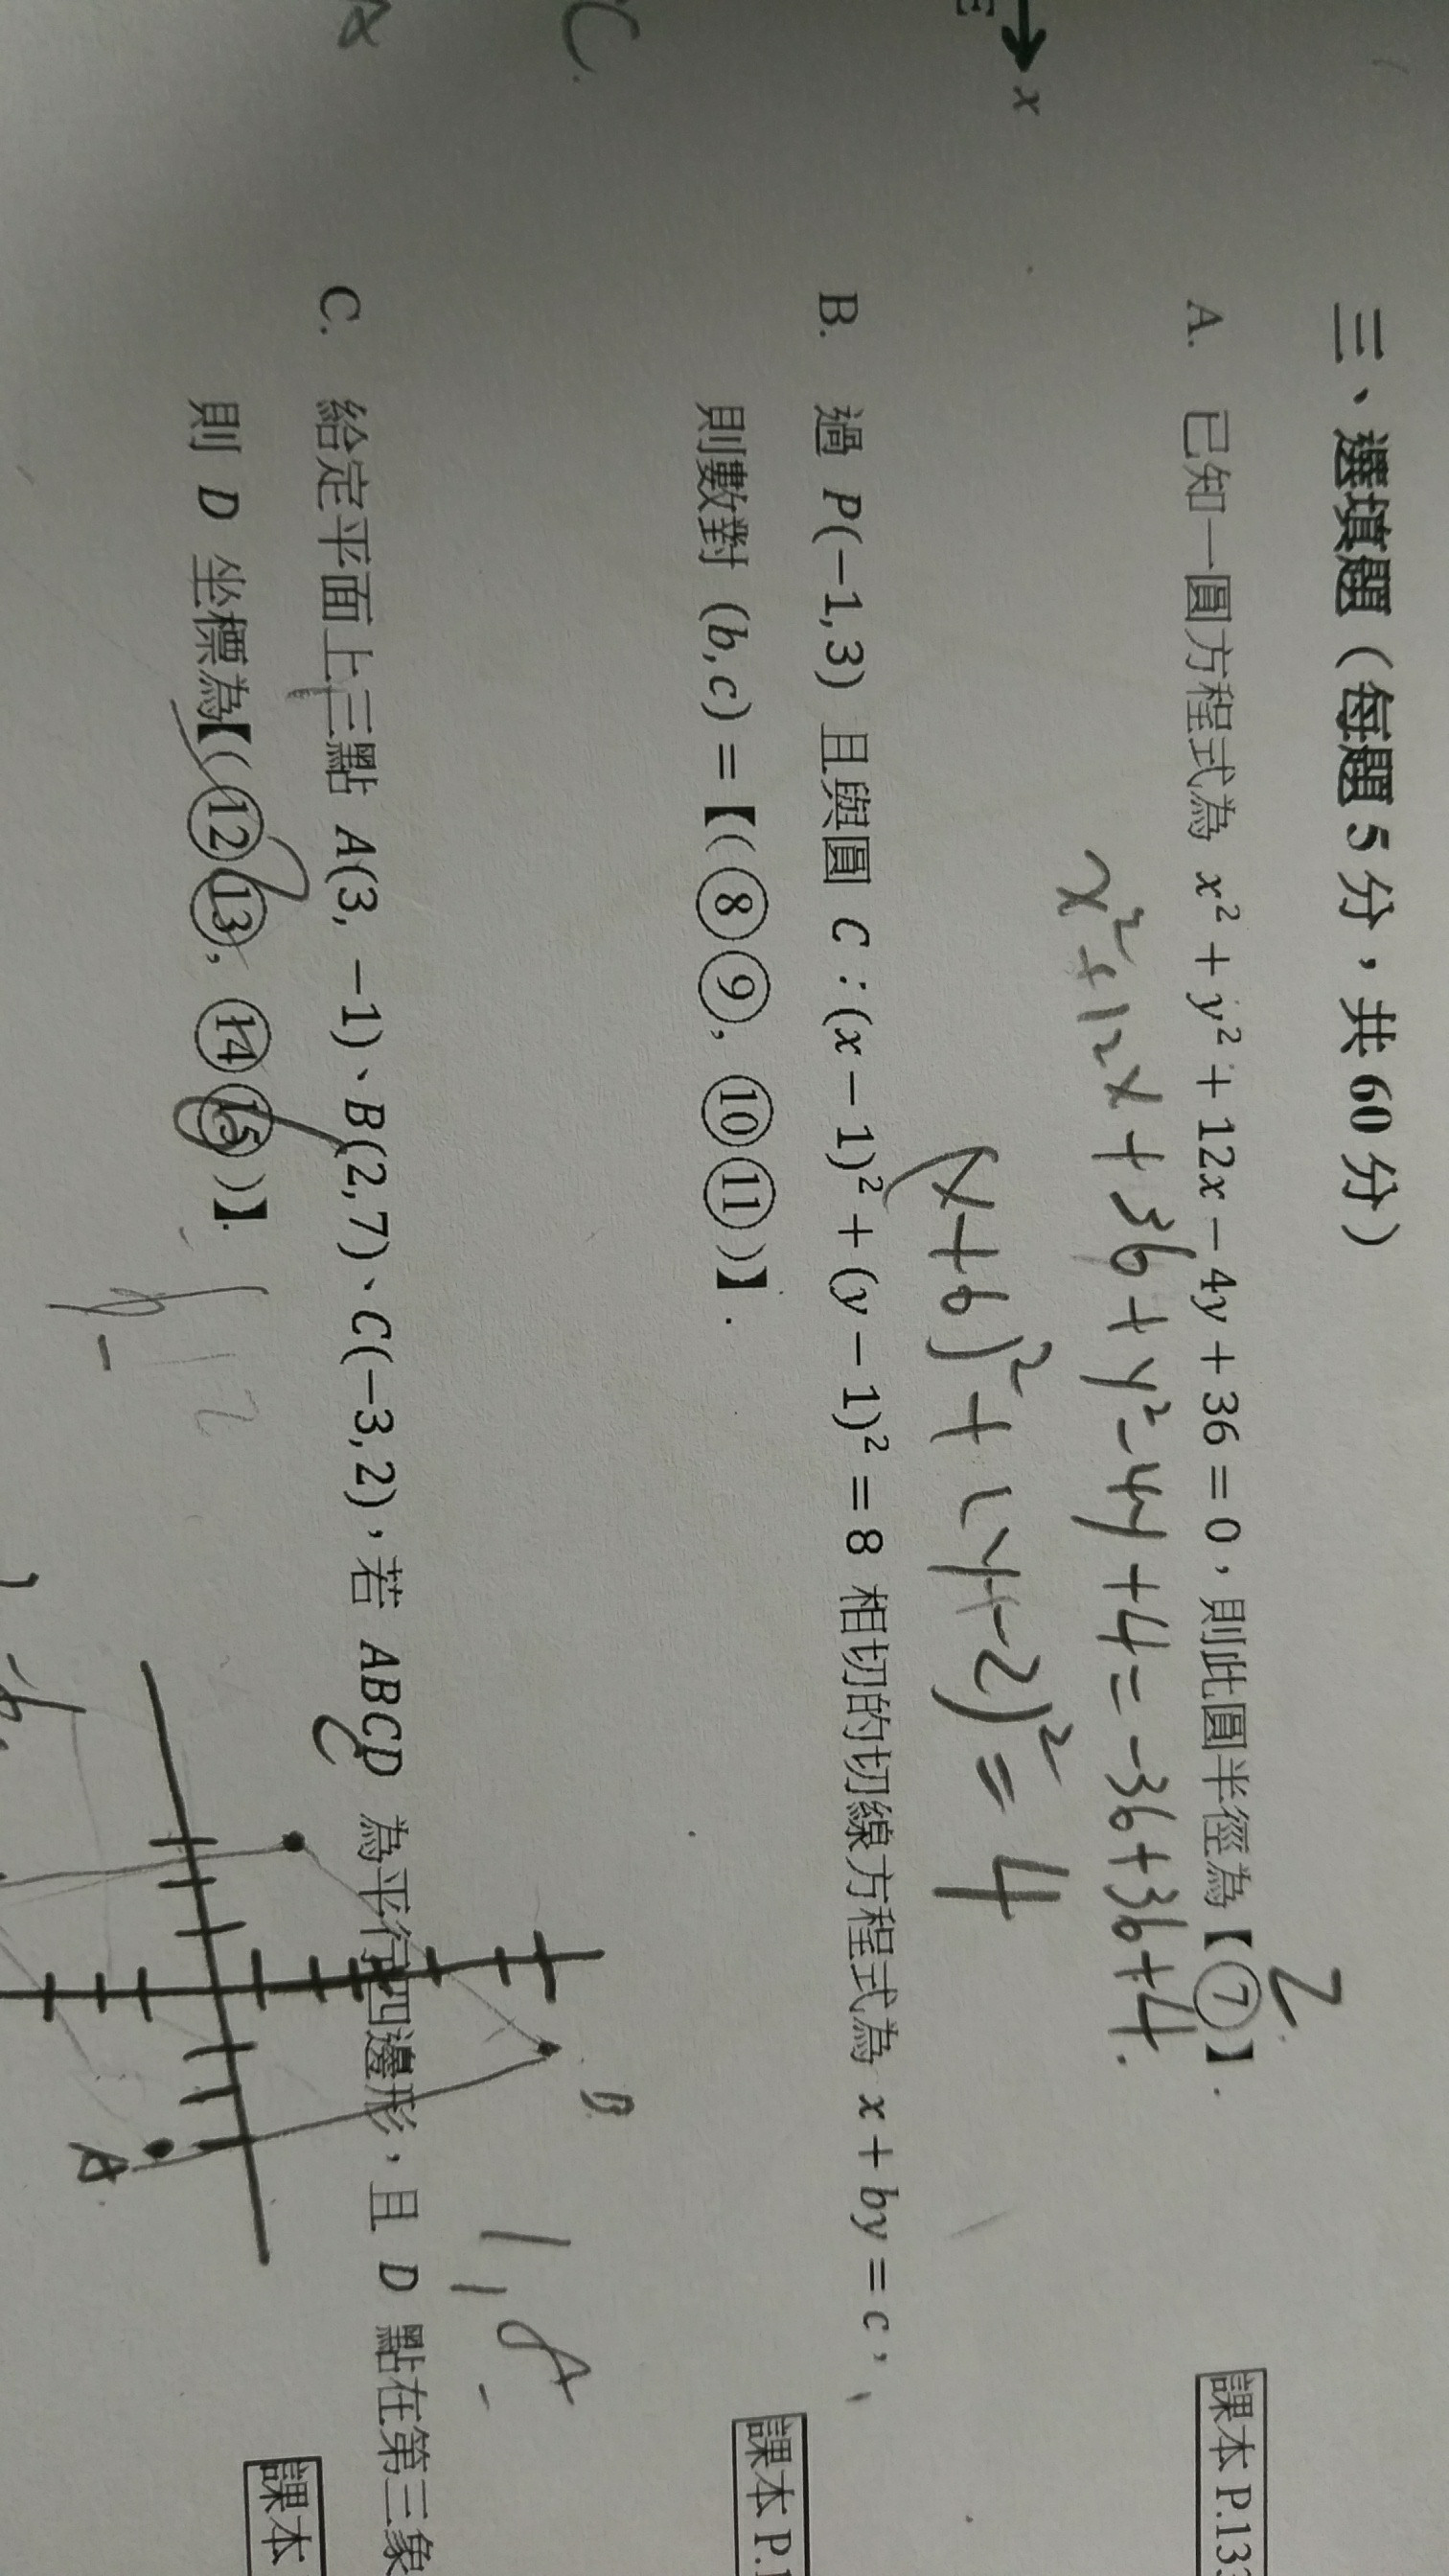 x
三、選填題（每題 5 分，共 60 分）
A. 已知一圓方程式為 x² + y² + 12x − 4y + 36 = 0，則此圓半徑為【⑦】.
2
課本 P.133
x²+12x+36+y²-4y+4=-36+36+4.
(x+6)²+(y-2)²=4
B. 過 P(−1,3) 且與圓 C：(x − 1)² + (y − 1)² = 8 相切的切線方程式為 x + by = c，
則數對 (b,c) =【(⑧⑨, ⑩⑪)】.
課本 P.1
C.
C. 給定平面上三點 A(3, −1)、B(2,7)、C(−3,2)，若 ABCD 為平行四邊形，且 D 點在第三象
則 D 坐標為【(⑫⑬, ⑭⑮)】.
課本
B
A